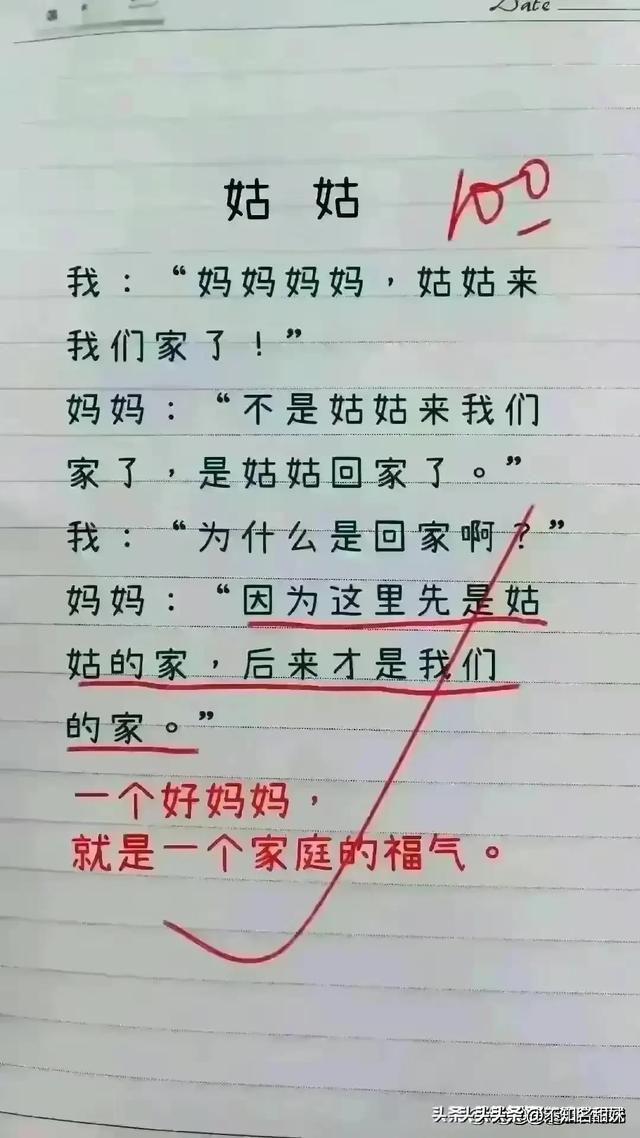 Date
姑 姑
100
我：“妈妈妈妈，姑姑来
我们家了！”
妈妈：“不是姑姑来我们
家了，是姑姑回家了。”
我：“为什么是回家啊？”
妈妈：“因为这里先是姑
姑的家，后来才是我们
的家。”
一个好妈妈，
就是一个家庭的福气。